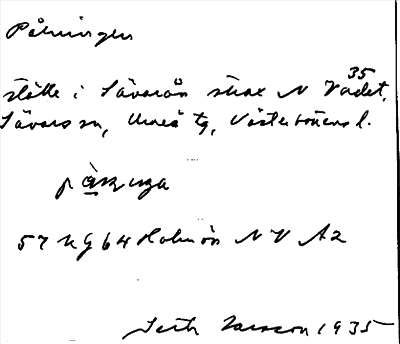 Pålningen
35
ställe i Sävarån strax N Vadet,
Sävars sn, Umeå tg, Västerbottens l.
57 Kg 64 Holmön NV A2
Larsson 1935